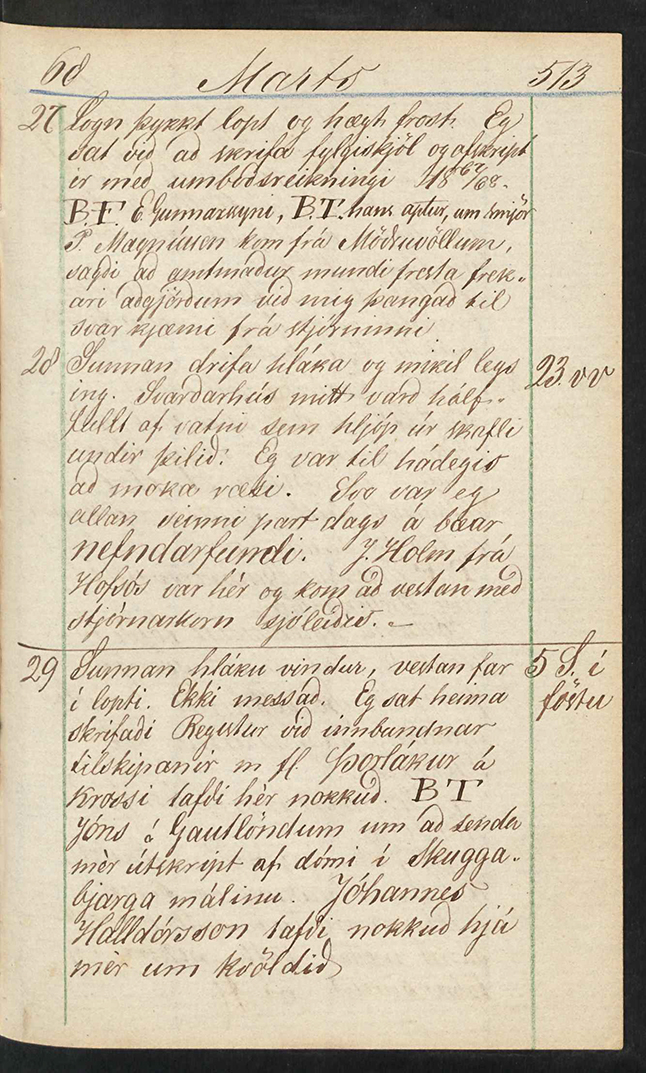 68 Marts 513
27 Logn þykkt lopt og hægt frost. Eg
sat við að skrifa fylgiskjöl og afskript
er með umboðsreikningi 1867/68.
B.F. E. Gunnarssyni, B.T. hans aptur, um smjör
P. Magnússen kom frá Möðruvöllum,
sagði að amtmaður mundi fresta frek-
ari aðgjörðum við mig þangað til
svar kjæmi frá stjórninni
28 Sunnan drifa hláka og mikil leys 23. v v
ing. Svarðarhús mitt varð hálf-
fullt af vatni sem hljóp úr skafli
undir þilið. Eg var til hádegis
að moka ræsi. Svo var eg
allan seinni part dags á bæar
nefndarfundi. J. Holm frá
Hofsós var hér og kom að vestan með
stjórnarkorn sjóleiðis. -
29 Sunnan hláku vindur, vestan far 5 S. í
í lopti. Ekki messað. Eg sat heima föstu
skrifaði Registur við innbundnar
tilskipanir m fl. Þorlákur á
Krossi tafði hér nokkuð. BT
Jóns á Gautlöndum um að senda
mèr útskript af dómi í Skugga-
bjarga málinu. Jóhannes
Halldórsson tafði nokkuð hjá
mèr um kvöldið